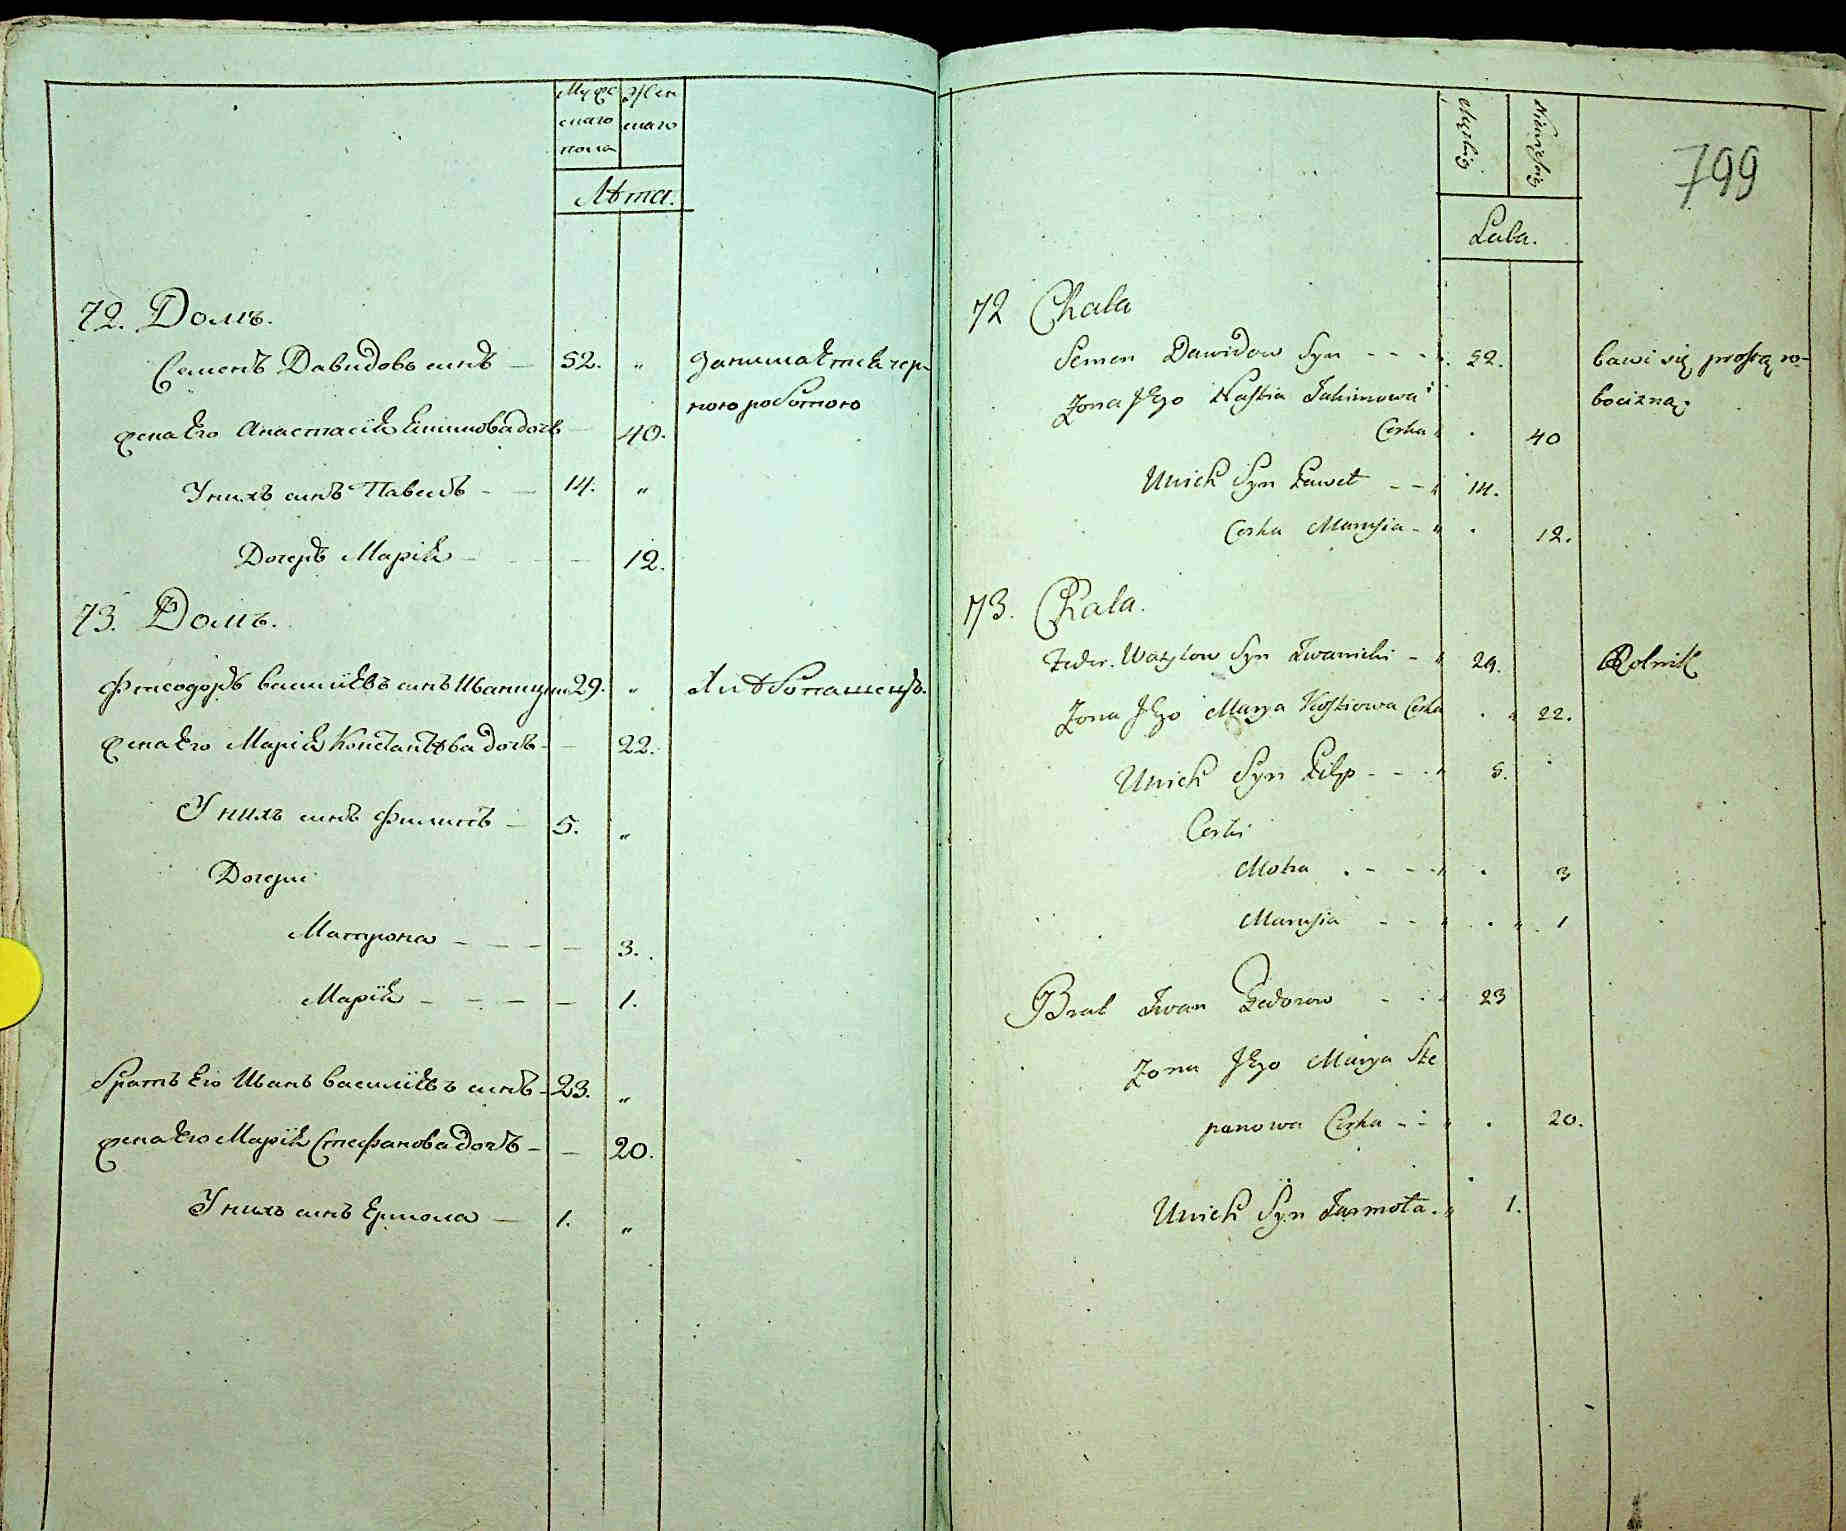 Мужескаго пола
Женскаго
Лѣта.
72. Домъ.
Семенъ Давидовъ синъ — 52. „ Занимаетисѧ чер-
ною роботою
жена Его Анастасіѧ Екимовa дочъ — 40.
У нихъ синъ Павелъ - — 14. „
Дочеръ Маріѧ - - — 12.
73. Домъ.
Фтеодоръ василіевъ синъ Иваницки 29. „ Хлѣбопашецъ.
жена Его Маріѧ Константѣва дочъ - — 22.
У нихъ синъ Филипъ — 5. „
Дочери
Матрона - - - — 3.
Маріѧ - - - — 1.
братъ Его Иванъ василіевъ синъ - 23. „
жена Его Маріѧ Стефанова дочъ - — 20.
У нихъ синъ Ермола — 1. „
Męskiey
Niewieskiey
799
Lata.
72 Chata
Semen Dawidow Syn - - - 52. bawi się prostą ro-
Żona Jego Nastia Jakimowa bocizną.
Corka . 40
U nich Syn Paweł - - 14.
Corka Marusia - . 12.
73. Chata.
Fedor Wasylow Syn Iwanicki - 29. Rolnik
Żona Jego Marya Kostiowa Corka . 22.
U nich Syn Filip - - - 5.
Corki
Motra . - - - . 3
Marusia - - . 1
Brat Iwan Fedorow - - 23
Żona Jego Marya Ste
panowa Corka - - . 20.
U nich Syn Jarmoła . 1.